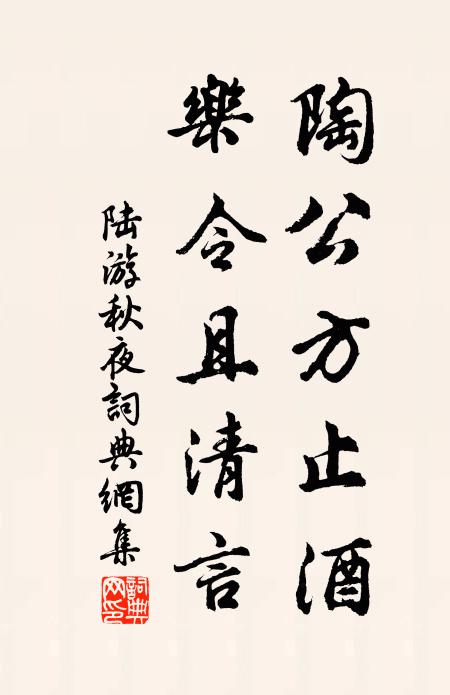 陶公方止酒
樂令且清言
陆游秋夜詞典網集
詞典
网印